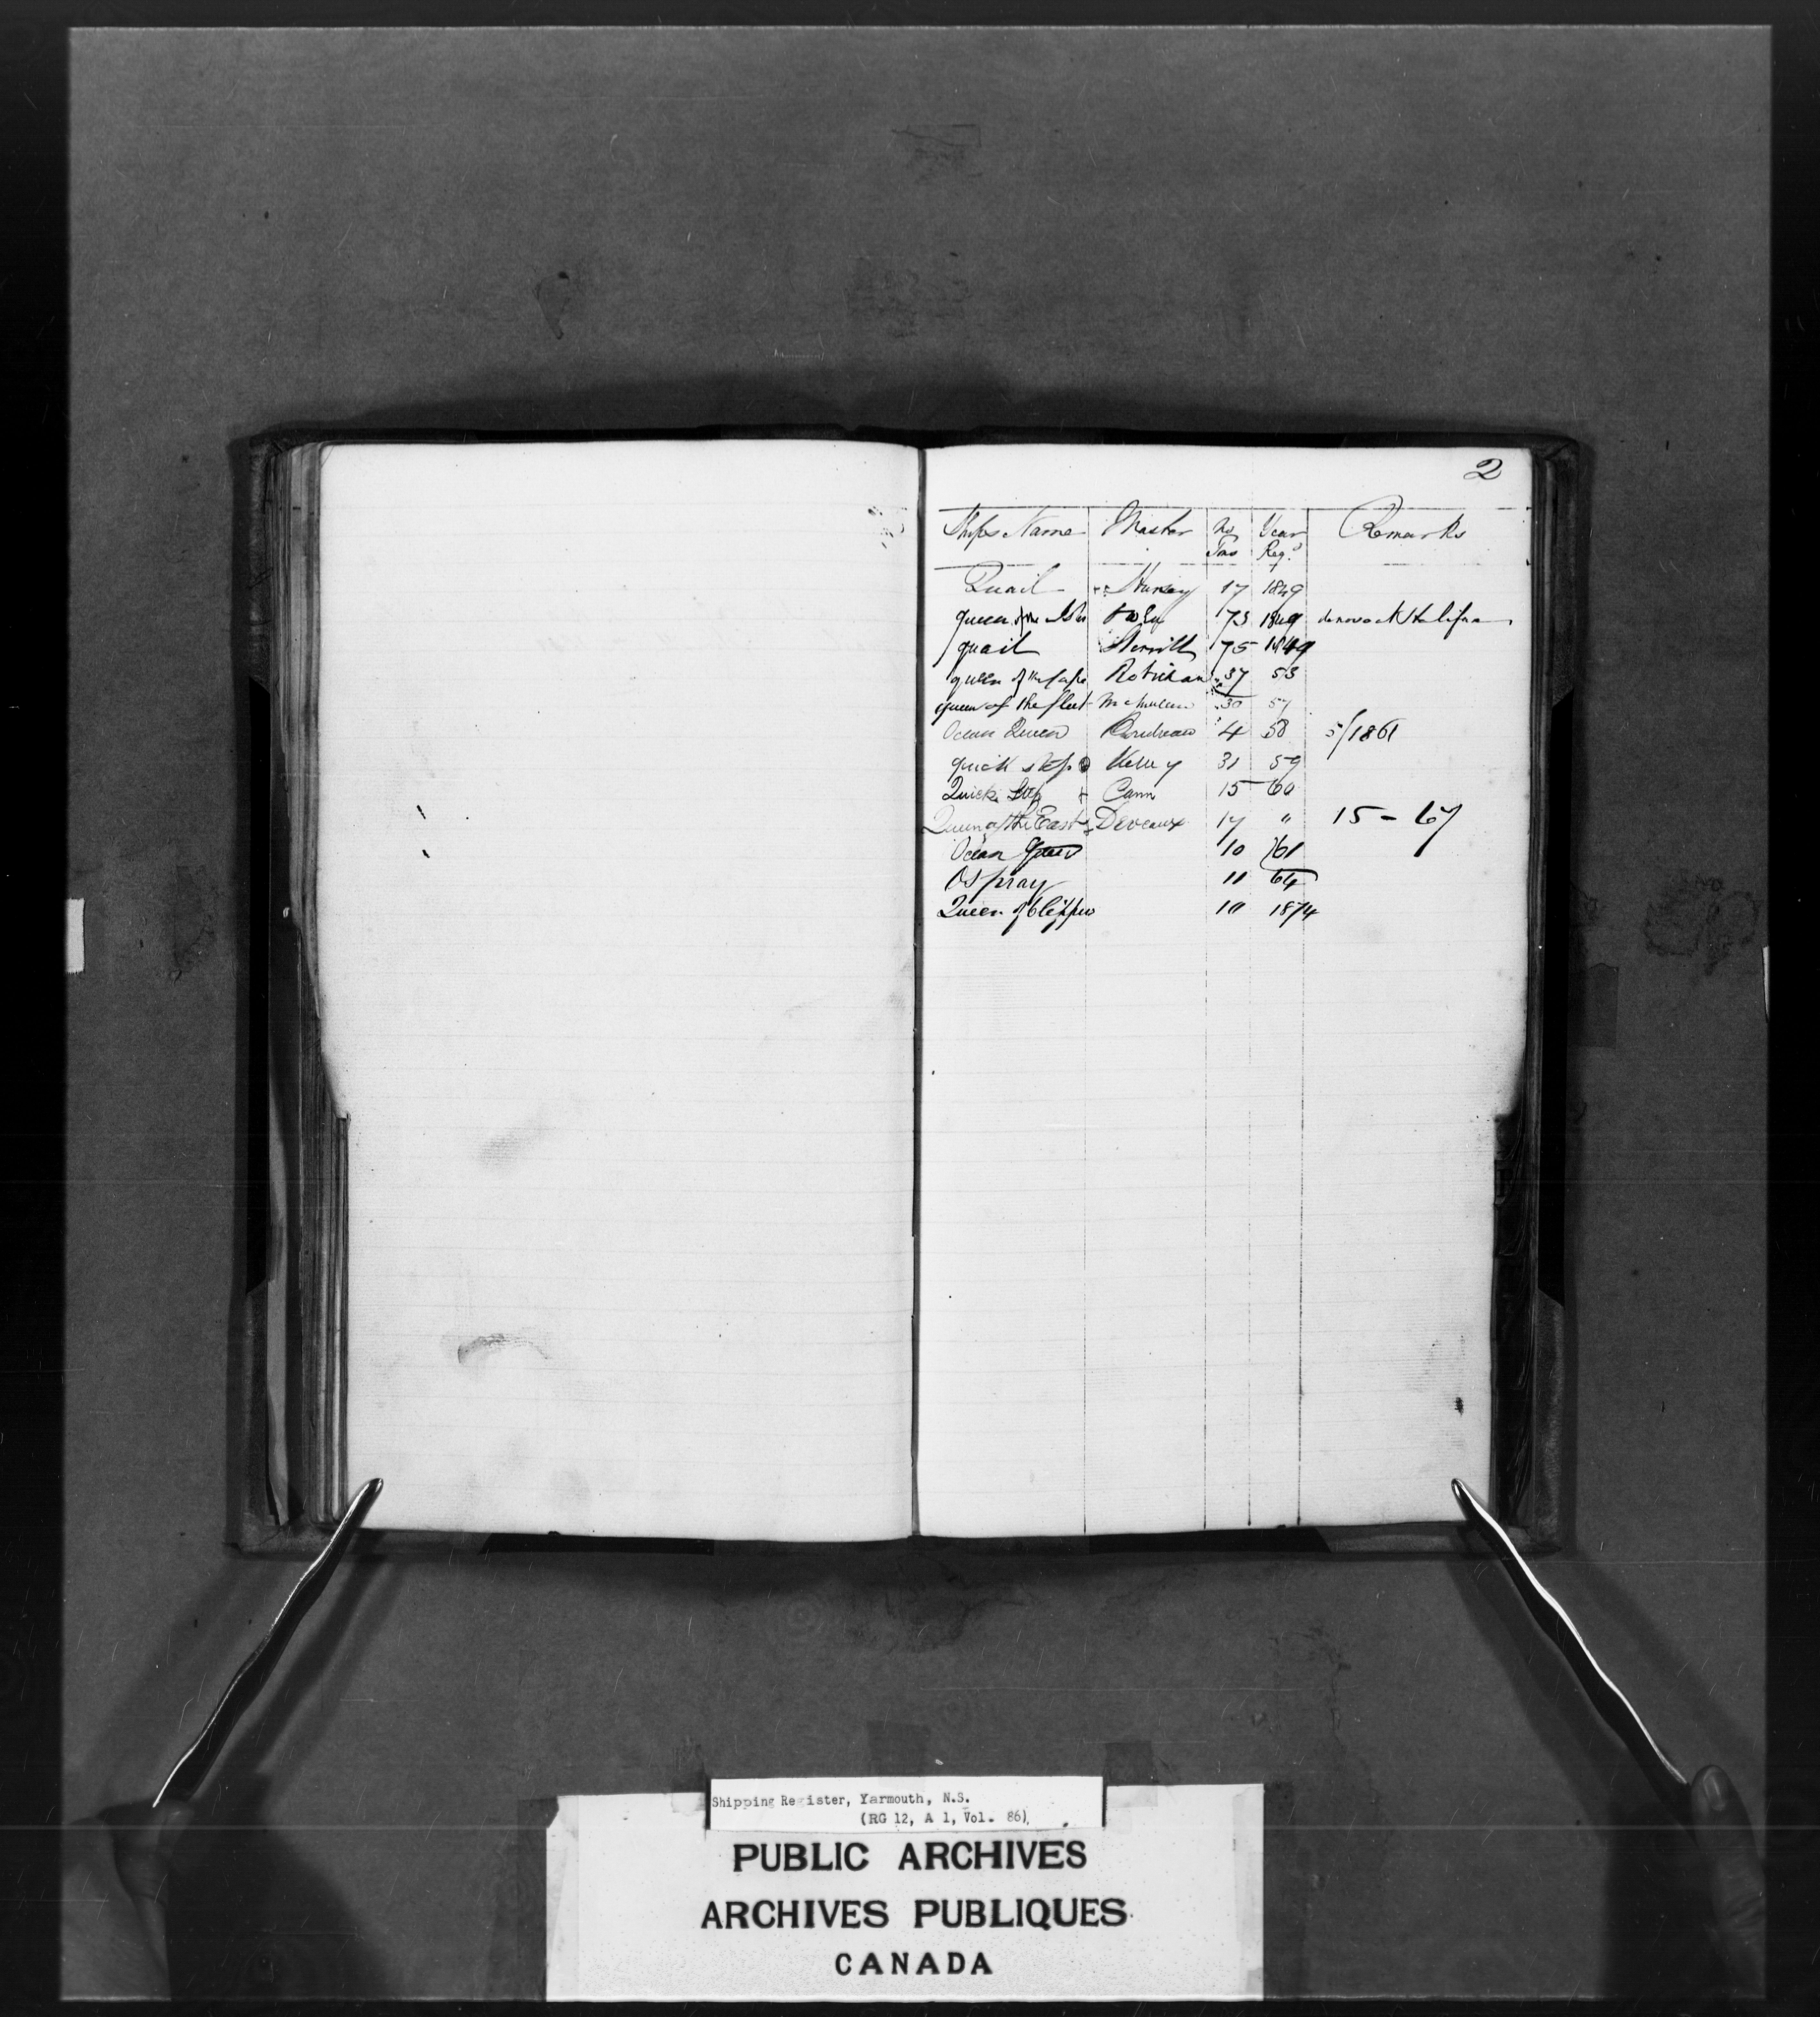 2
Ships Name Master No Tons Year Reg.d Remarks
Quail 17 1849
queen of the Isles 73 1849 de novo at Halifax
quail 75 1849
queen of the Cape Robichau 37 53
queen of the fleet 30 57
Ocean Queen 4 58 5/1861
quick step Kelley 31 59
Quick Step Cann 15 60
Queen of the East Deveaux 17 " 15 - 67
Ocean 10 61
Ospray 11 64
Queen of Clippers 10 1874
Shipping Register, Yarmouth, N.S.
(RG 12, A 1, Vol. 86)
PUBLIC ARCHIVES
ARCHIVES PUBLIQUES
CANADA